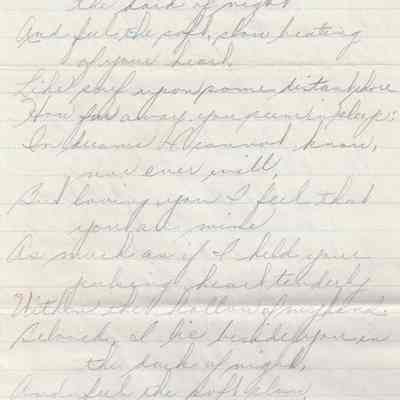 the dark of night
And feel the soft, slow beating
of your heart.
Like surf upon some distant shore
How far away you seem in sleep:
In dreams I cannot know,
nor ever will,
But loving you I feel that
you are mine
As much as if I held your
pulsing heart tenderly
Within the hollow of my hand.
Beloved, I lie beside you in
the dark of night,
And feel the soft slow